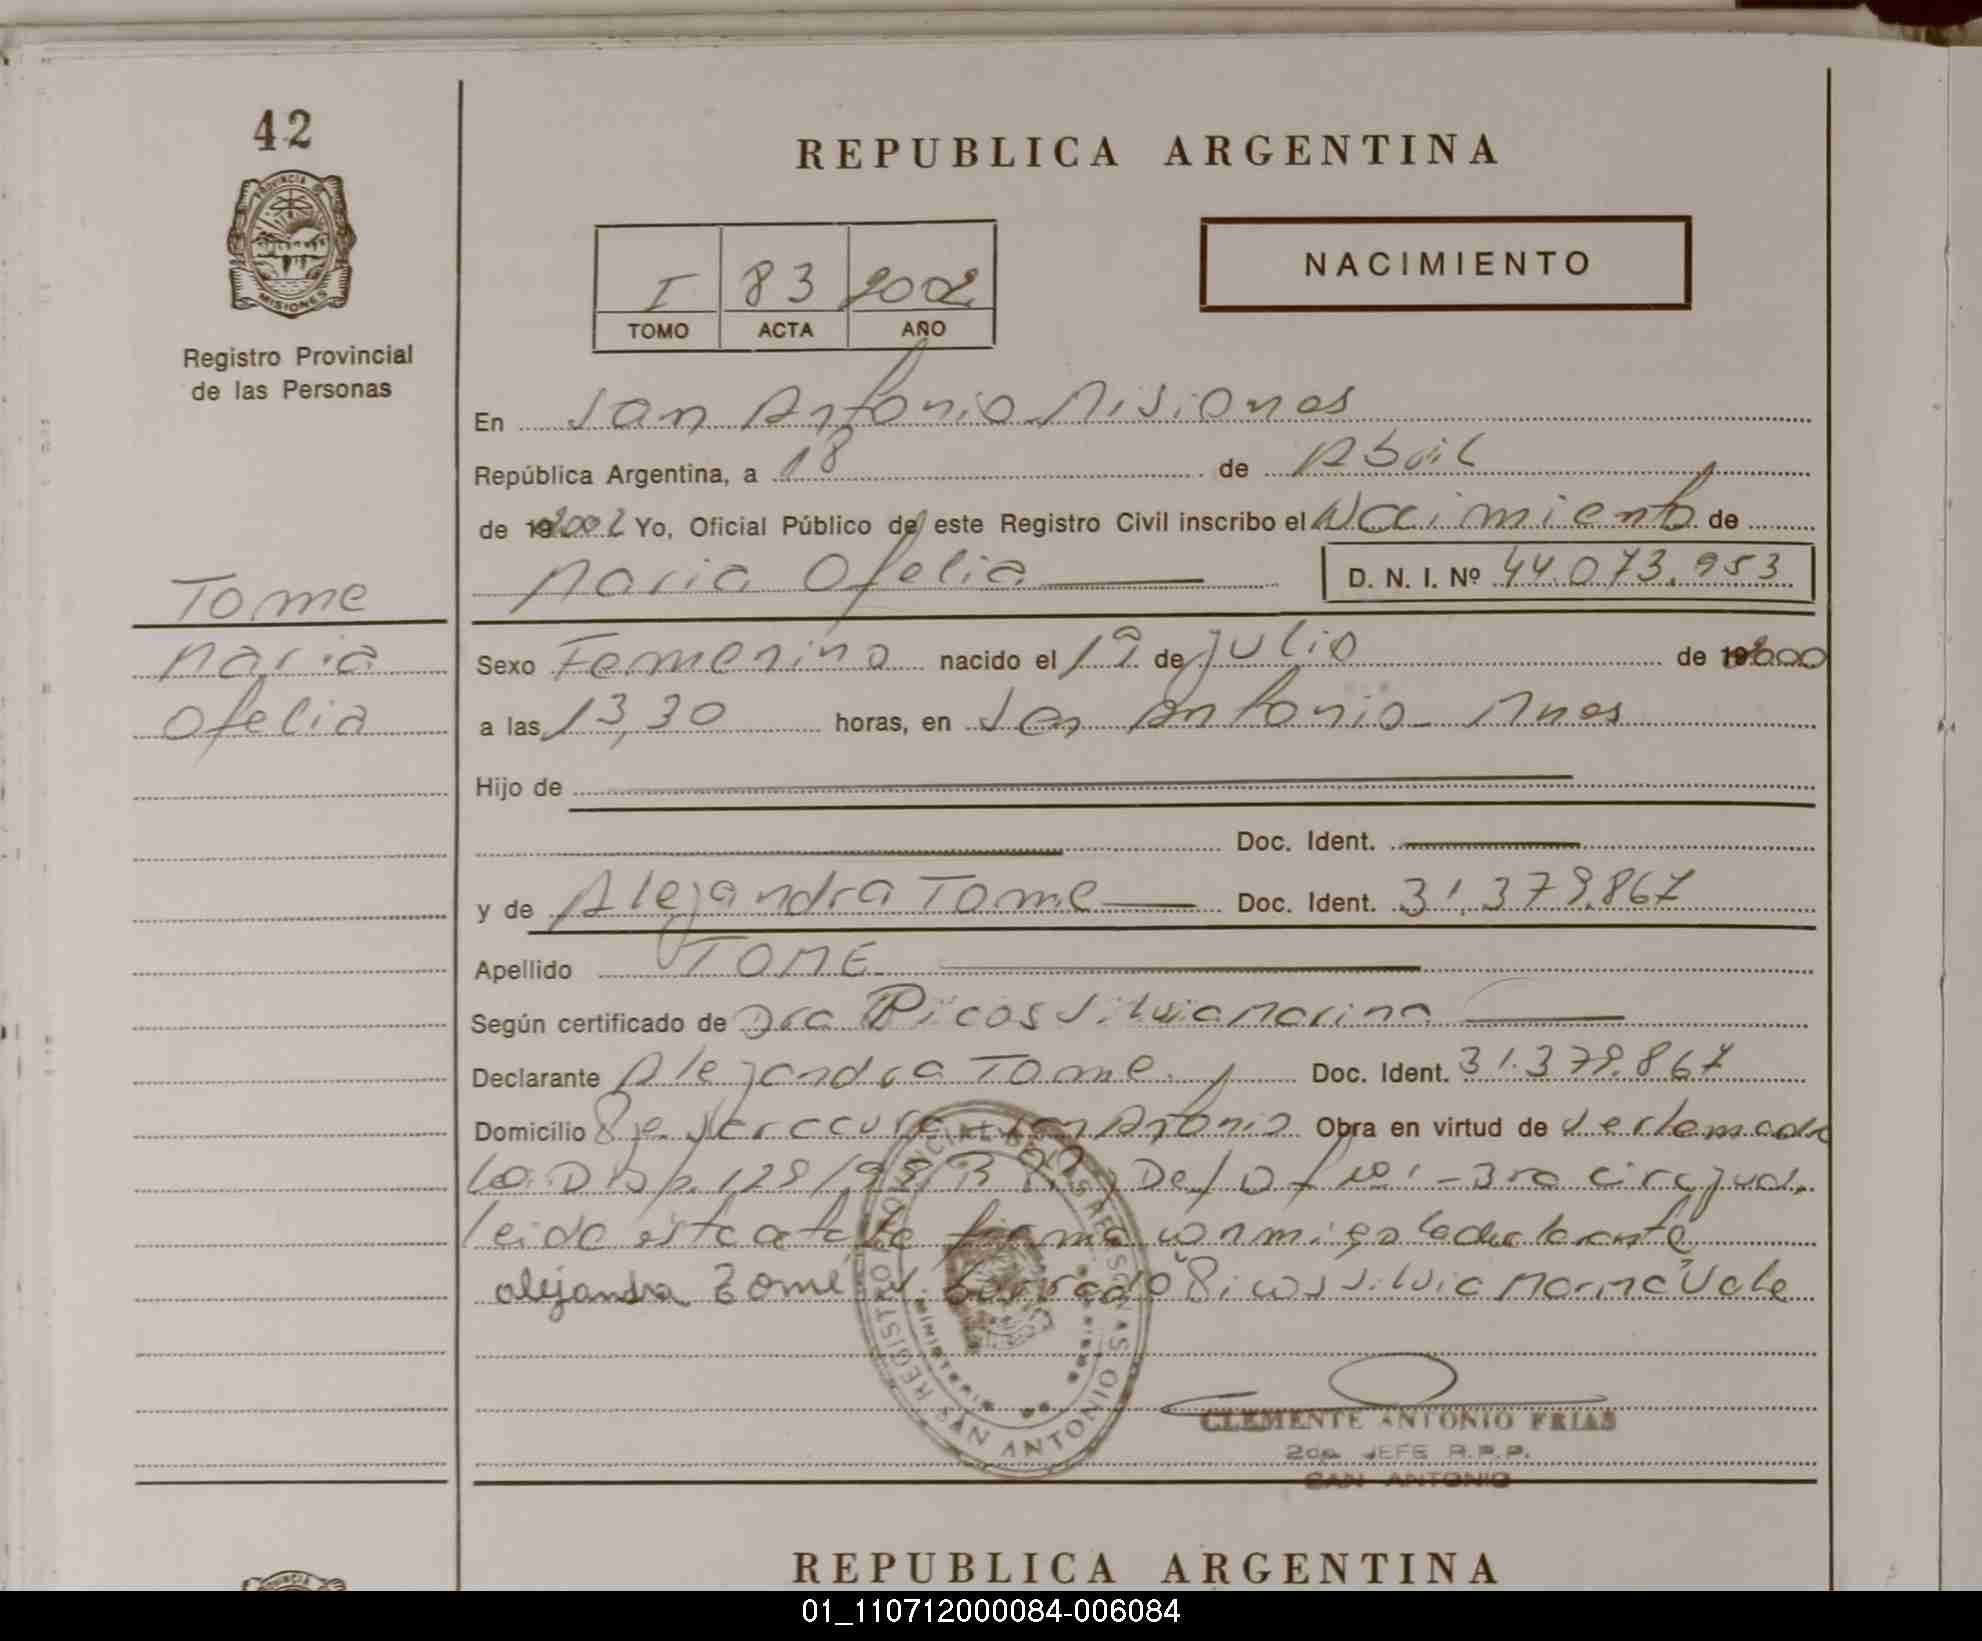 42
REPUBLICA ARGENTINA
PROVINCIA DE
MISIONES
Registro Provincial
de las Personas
I 83 2002
TOMO ACTA AÑO
NACIMIENTO
En San Antonio Misiones
República Argentina, a 18 de Abril
de 19 2002 Yo, Oficial Público de este Registro Civil inscribo el Nacimiento de
Maria Ofelia D. N. I. Nº 44.073.953
Tome
Maria
Ofelia
Sexo Femenino nacido el 19 de julio de 19 2000
a las 13,30 horas, en San Antonio - Mnes
Hijo de
Doc. Ident.
y de Alejandra Tome Doc. Ident. 31.379.867
Apellido TOME
Según certificado de Dra Picos Silvia Marina
Declarante Alejandra Tome. Doc. Ident. 31.379.867
Domicilio San Antonio Obra en virtud de
La Disp. 128/99 - 3ra circ. jud.
leida esta acta la firma conmigo la declarante
alejandra Tomé Borrado "Picos Silvia Marina" Vale
REGISTRO PROVINCIAL DE LAS PERSONAS
MINISTERIO
SAN ANTONIO
CLEMENTE ANTONIO FRIAS
2do. JEFE R.P.P.
SAN ANTONIO
REPUBLICA ARGENTINA
01_110712000084-006084